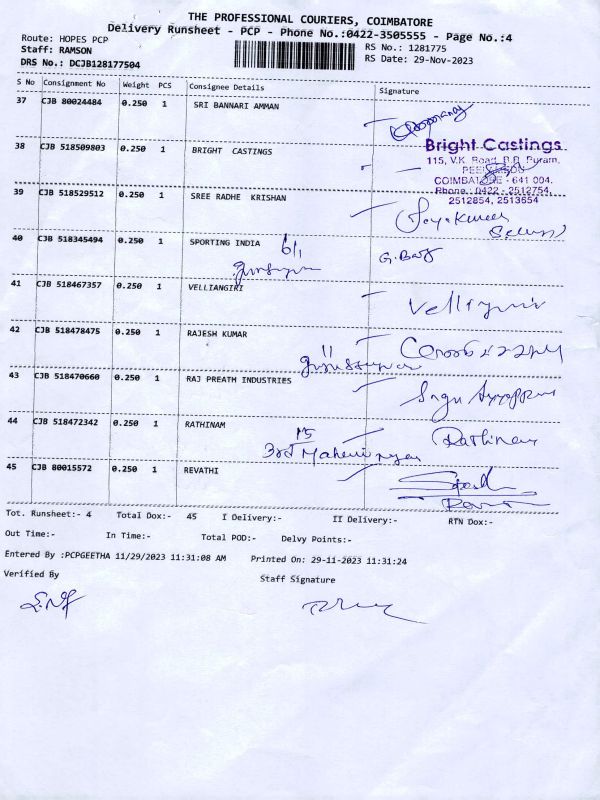 THE PROFESSIONAL COURIERS, COIMBATORE
Delivery Runsheet - PCP - Phone No.:0422-3505555 - Page No.:4
Route: HOPES PCP
RS No.: 1281775
Staff: RAMSON
RS Date: 29-Nov-2023
DRS No.: DCJB128177504
S No Consignment No Weight PCS Consignee Details Signature
37 CJB 80024484 0.250 1 SRI BANNARI AMMAN
38 CJB 518509803 0.250 1 BRIGHT CASTINGS
Bright Castings
115, V.K. Road, B.R. Puram,
COIMBATORE - 641 004.
Phone : 0422 - 2512754,
2512854, 2513654
39 CJB 518529512 0.250 1 SREE RADHE KRISHAN
Jayakumar
40 CJB 518345494 0.250 1 SPORTING INDIA
41 CJB 518467357 0.250 1 VELLIANGIRI
42 CJB 518478475 0.250 1 RAJESH KUMAR
43 CJB 518470660 0.250 1 RAJ PREATH INDUSTRIES
44 CJB 518472342 0.250 1 RATHINAM
Rathinam
45 CJB 80015572 0.250 1 REVATHI
Tot. Runsheet:- 4 Total Dox:- 45 I Delivery:- II Delivery:- RTN Dox:-
Out Time:- In Time:- Total POD:- Delvy Points:-
Entered By :PCPGEETHA 11/29/2023 11:31:08 AM Printed On: 29-11-2023 11:31:24
Verified By
Staff Signature